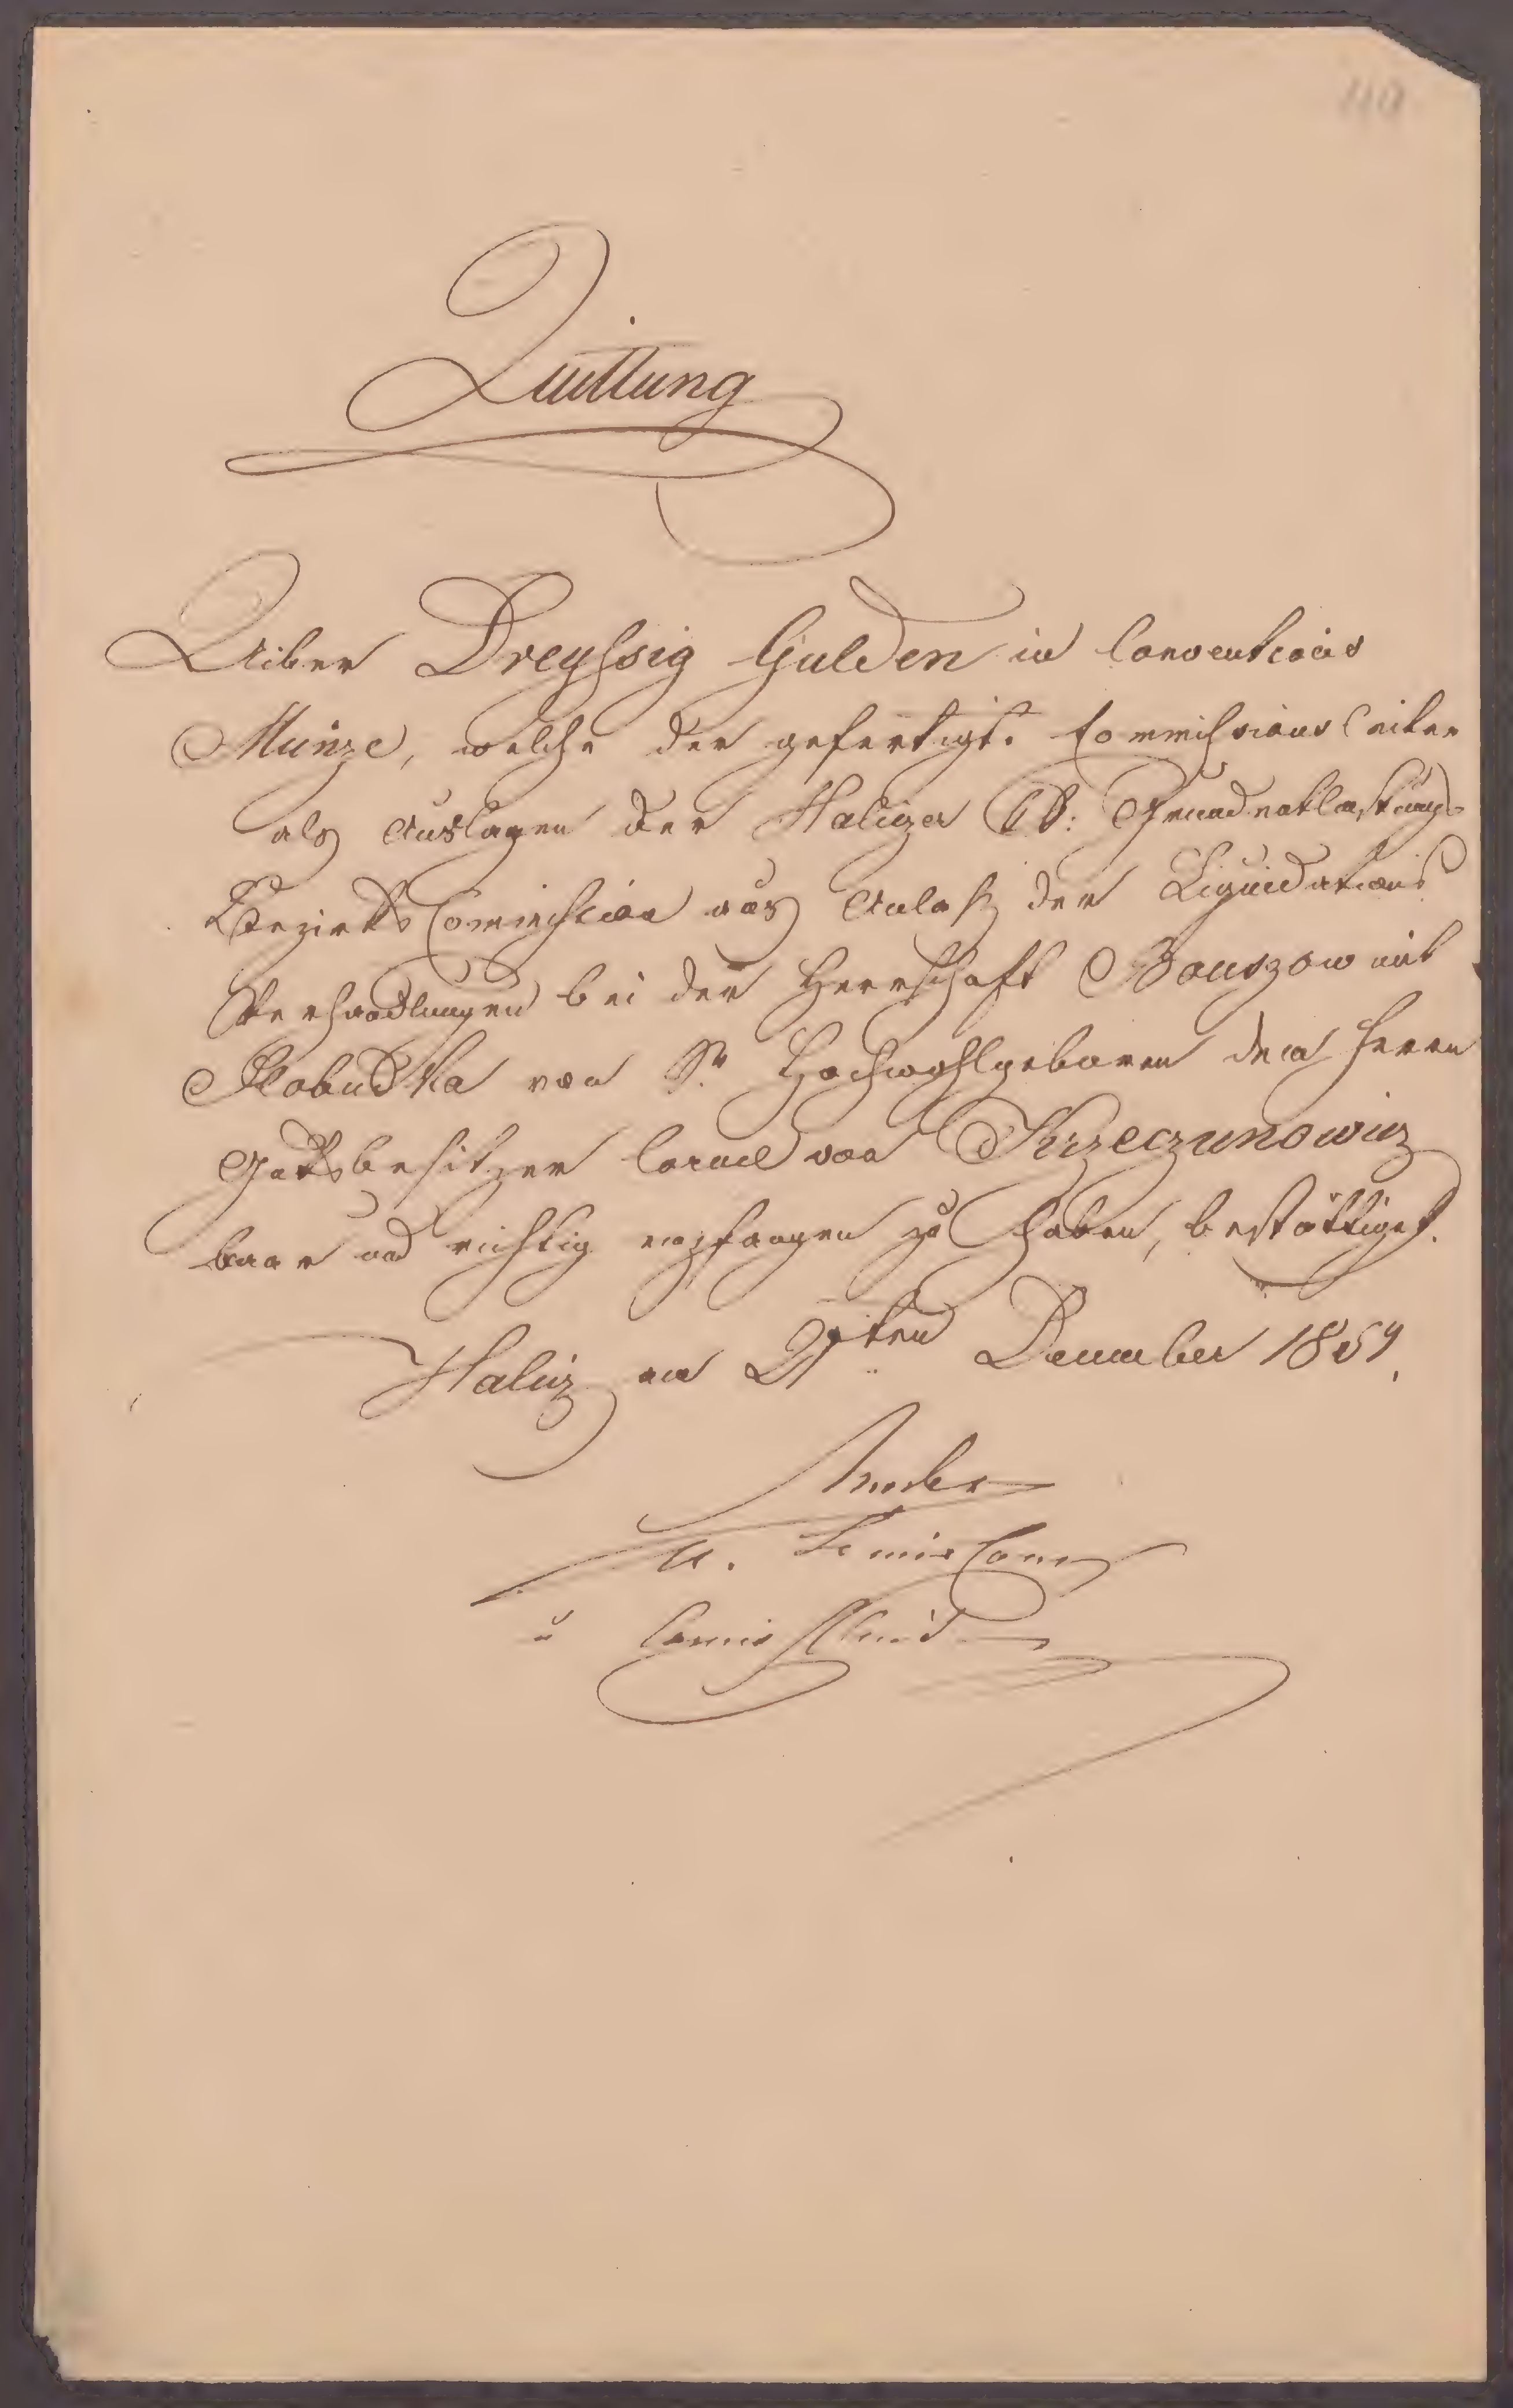 Quittung
Uiber Dreyssig Gulden in Conventions
Münze, welche der gefertigt. Commissionsleiter
als Auslagen der Halizer Grundentlastungs-
Bezirks Commission aus Anlaß der Liquidations
Verhandlungen bei der Herrschaft Bouszow mit
Slobudka von Sr Hochwohlgeboren dem Herrn
Gutsbesitzer Cornel von Krzeczunowicz
baar und richtig empfangen zu haben, bestättiget.
Halicz am 21ten December 1854.